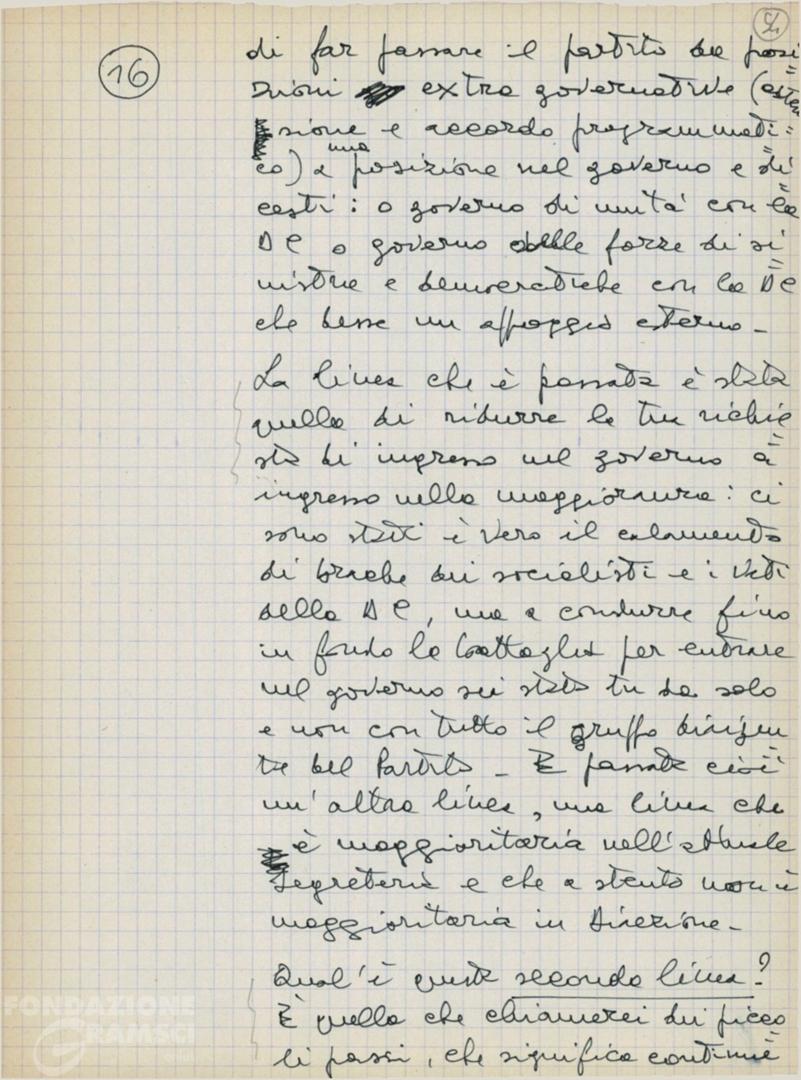 16
di far passare il partito da posi=
zioni extra governative (asten
sione e accordo programmati=
co) a una posizione nel governo e di=
cesti: o governo di unità con la
DC o governo delle forze di si=
nistra e democratiche con la DC
che desse un appoggio esterno -
La linea che è passata è stata
quella di ridurre la tua richie=
sta di ingresso nel governo a
ingresso nella maggioranza: ci
sono stati è vero il calamento
di brache dei socialisti e i veti
della DC, ma a condurre fino
in fondo la battaglia per entrare
nel governo sei stato tu da solo
e non con tutto il gruppo dirigen=
te del Partito - È passata cioè
un'altra linea, una linea che
è maggioritaria nell'attuale
Segreteria e che a stento non è
maggioritaria in Direzione -
Qual'è questa seconda linea?
È quella che chiamerei dei picco=
li passi, che significa continue
FONDAZIONE
GRAMSCI